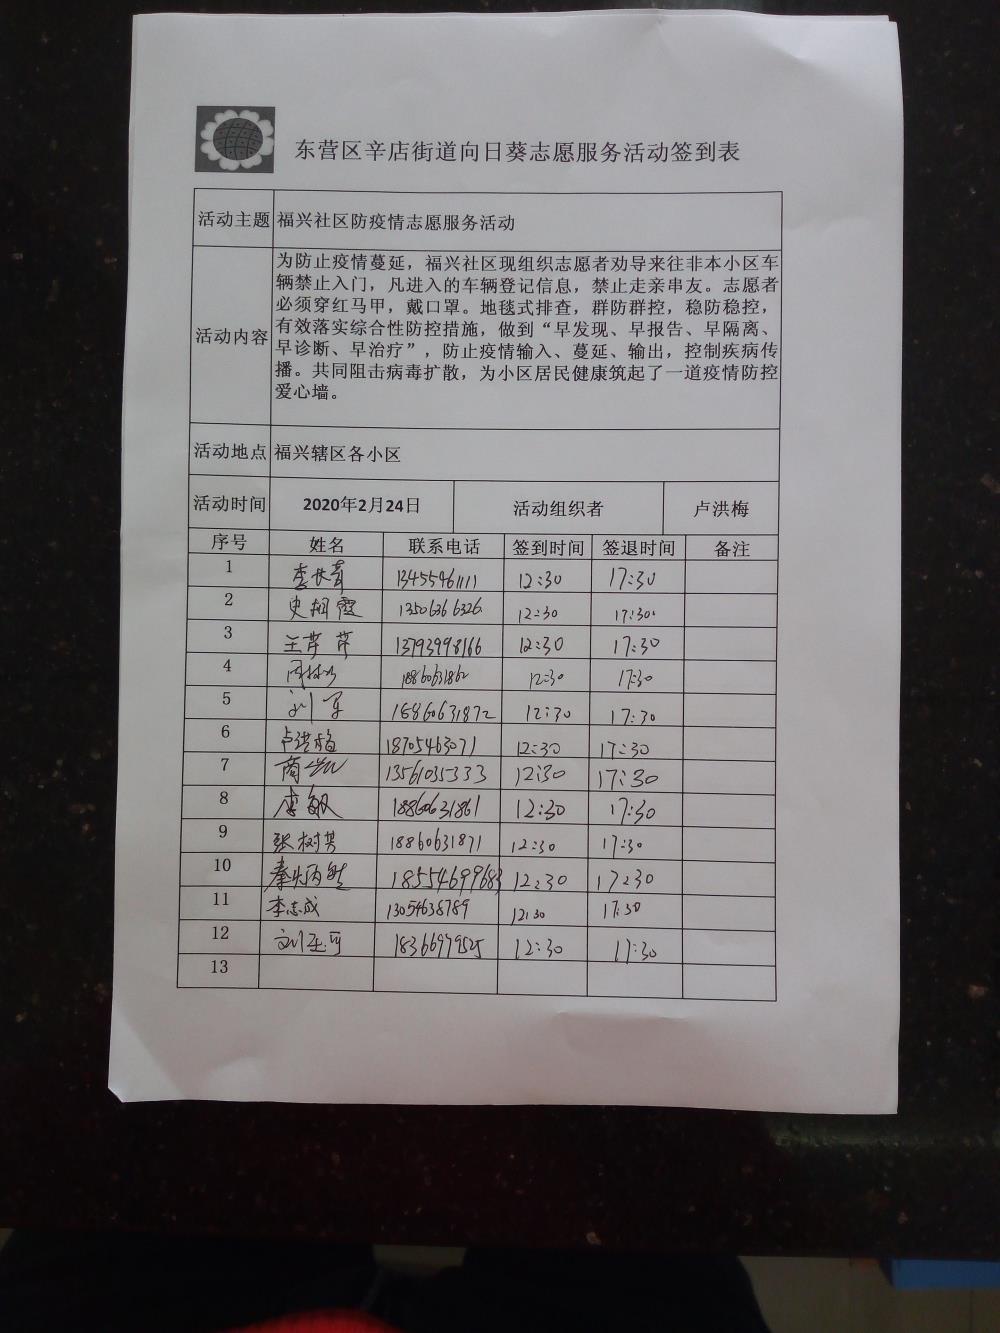 东营区辛店街道向日葵志愿服务活动签到表
活动主题 福兴社区防疫情志愿服务活动
活动内容
为防止疫情蔓延，福兴社区现组织志愿者劝导来往非本小区车
辆禁止入门，凡进入的车辆登记信息，禁止走亲串友。志愿者
必须穿红马甲，戴口罩。地毯式排查，群防群控，稳防稳控，
有效落实综合性防控措施，做到“早发现、早报告、早隔离、
早诊断、早治疗”，防止疫情输入、蔓延、输出，控制疾病传
播。共同阻击病毒扩散，为小区居民健康筑起了一道疫情防控
爱心墙。
活动地点 福兴辖区各小区
活动时间 2020年2月24日 活动组织者 卢洪梅
序号 姓名 联系电话 签到时间 签退时间 备注
1 13455461111 12:30 17:30
2 12:30 17:30
3 王芹芹 13793998166 12:30 17:30
4 18860631862 12:30 17:30
5 刘军 18860631872 12:30 17:30
6 卢洪梅 18705463071 12:30 17:30
7 13561035333 12:30 17:30
8 18860631861 12:30 17:30
9 张树芳 18860631871 12:30 17:30
10 18554699683 12:30 17:30
11 李志成 13054638789 12:30 17:30
12 18366979525 12:30 17:30
13